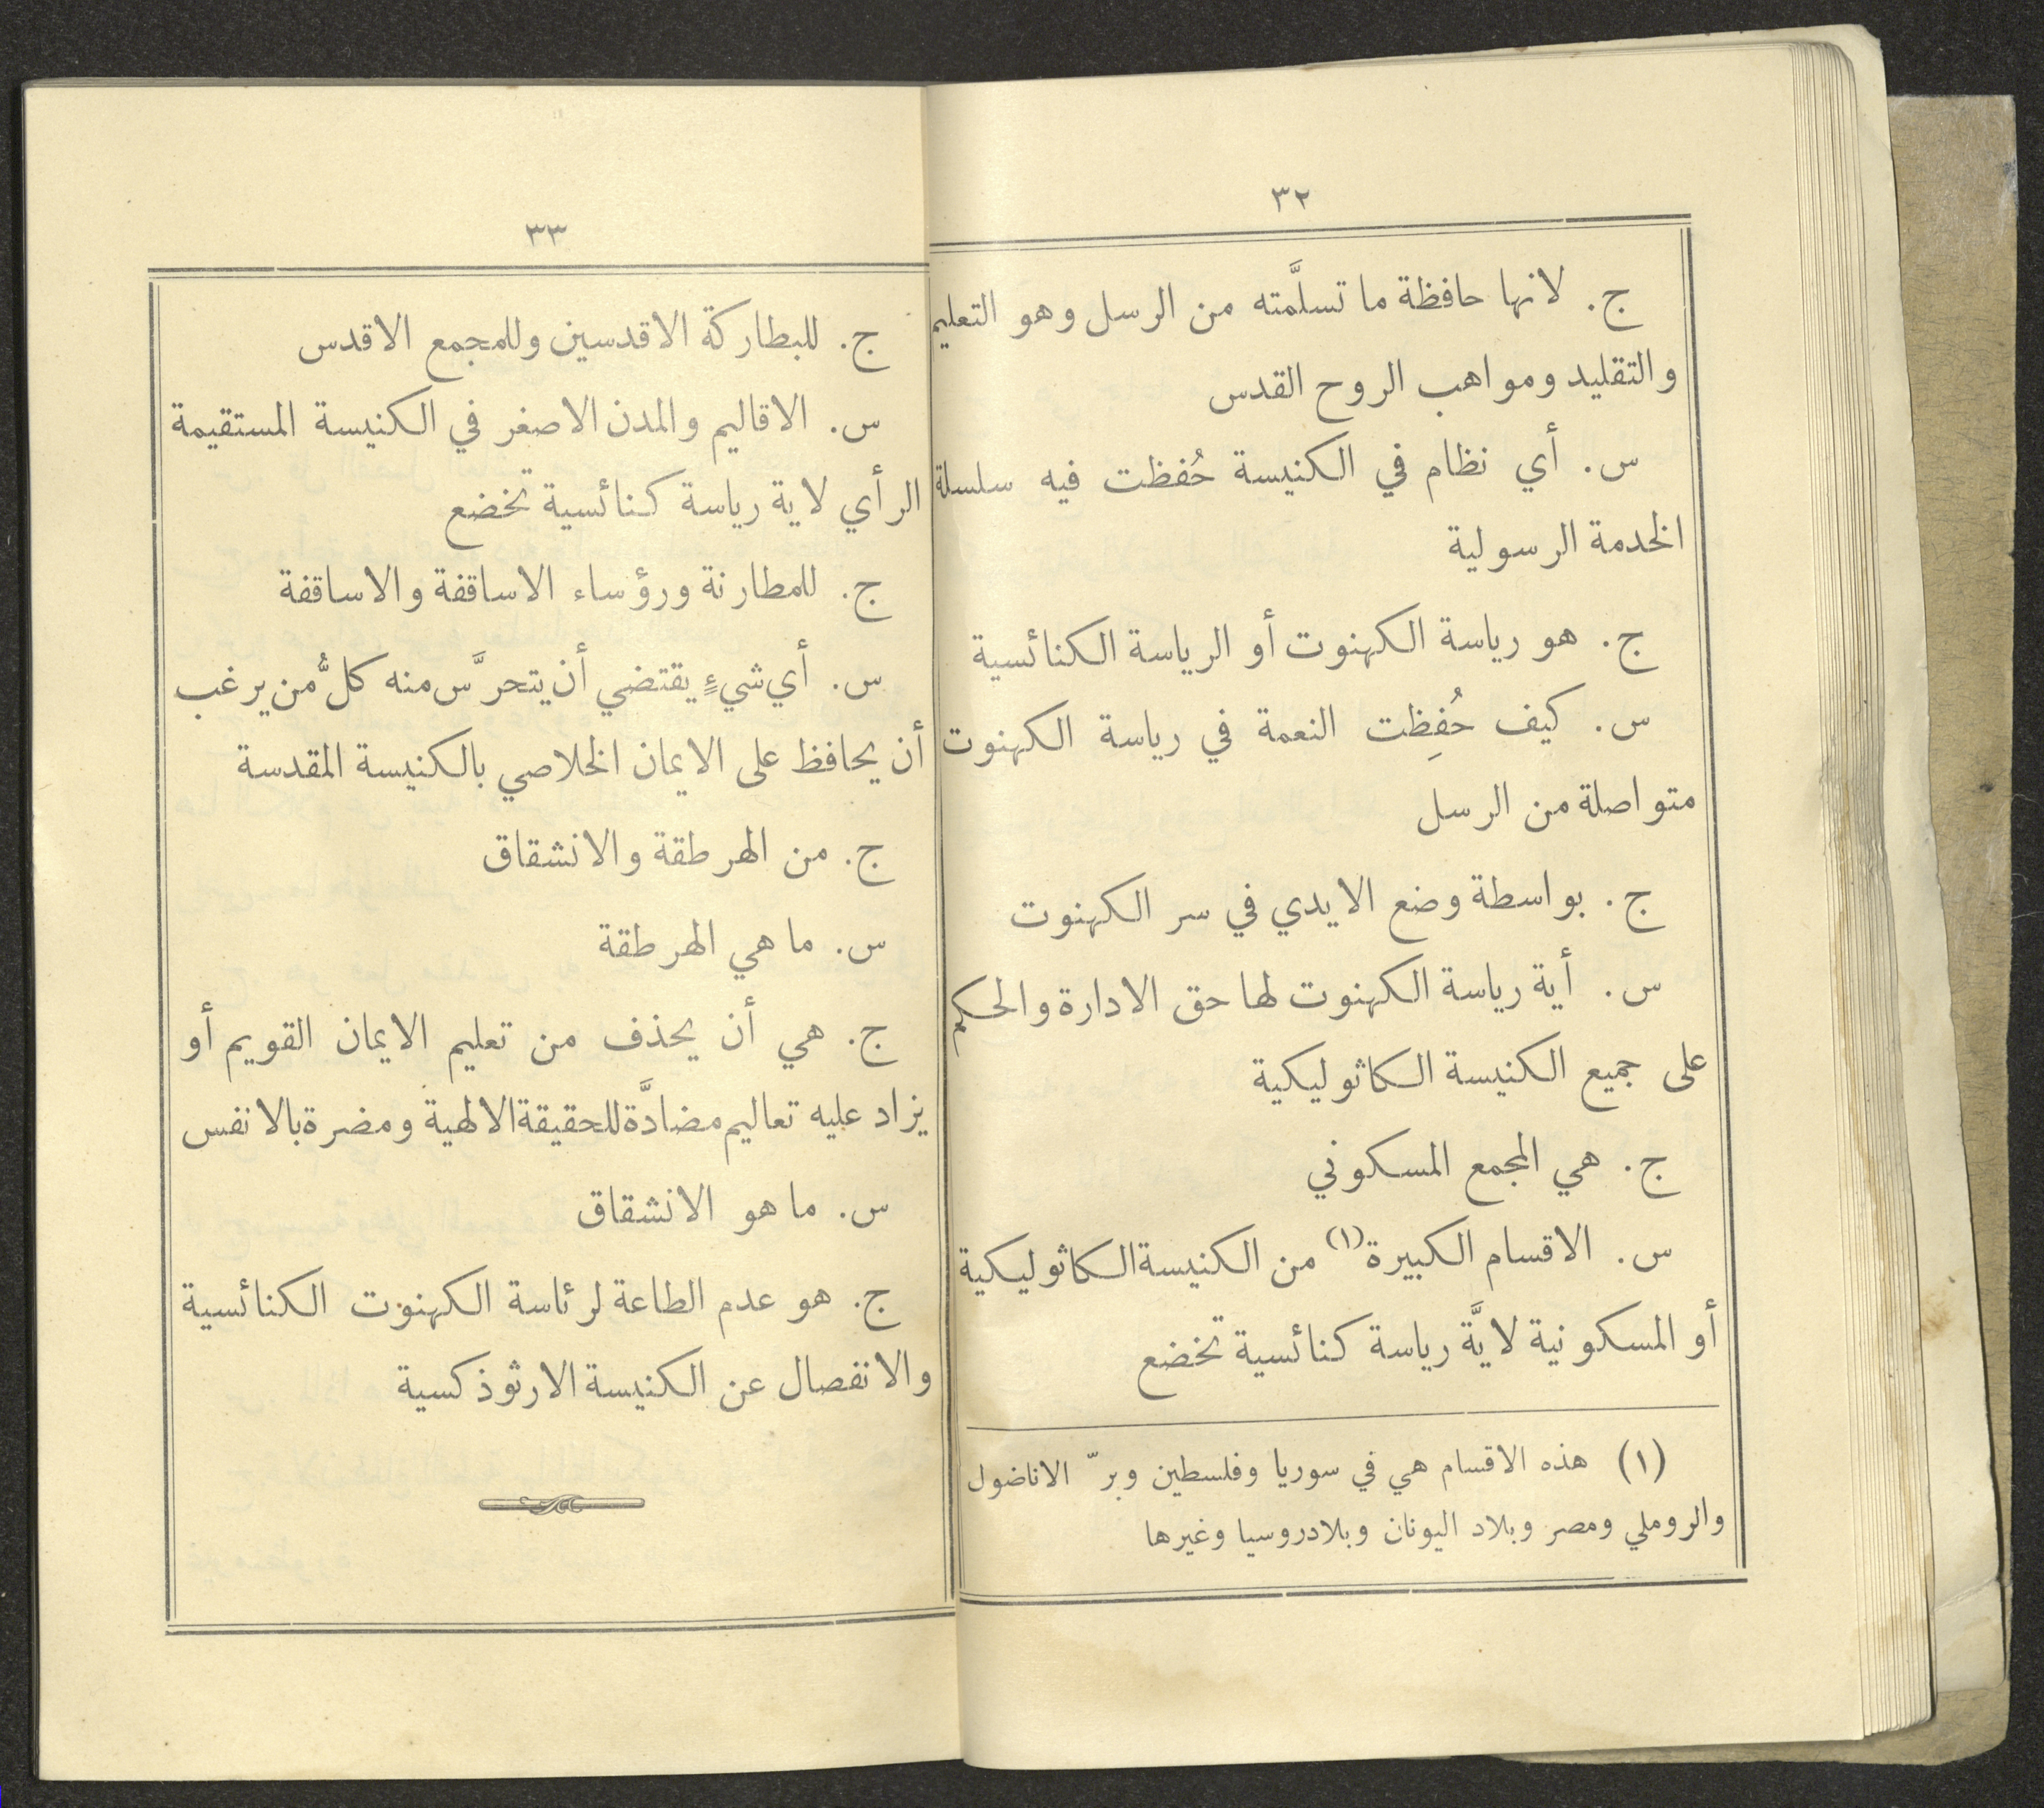 ٣٢
ج. لانها حافظة ما تسلَّمته من الرسل وهو التعليم
والتقليد ومواهب الروح القدس
س. أي نظام في الكنيسة حُفظت فيه سلسلة
الخدمة الرسولية
ج. هو رياسة الكهنوت أو الرياسة الكنائسية
س. كيف حُفِظت النعمة في رياسة الكهنوت
متواصلة من الرسل
ج. بواسطة وضع الايدي في سر الكهنوت
س. أية رياسة الكهنوت لها حق الادارة والحكم
على جميع الكنيسة الكاثوليكية
ج. هي المجمع المسكوني
س. الاقسام الكبيرة(١) من الكنيسة الكاثوليكية
أو المسكونية لايَّة رياسة كنائسية تخضع
(١) هذه الاقسام هي في سوريا وفلسطين وبرّ الاناضول
والروملي ومصر وبلاد اليونان وبلاد روسيا وغيرها
٣٣
ج. للبطاركة الاقدسين وللمجمع الاقدس
س. الاقاليم والمدن الاصغر في الكنيسة المستقيمة
الرأي لاية رياسة كنائسية تخضع
ج. للمطارنة ورؤساء الاساقفة والاساقفة
س. أي شيءٍ يقتضي أن يتحرَّس منه كلُّ من يرغب
أن يحافظ على الايمان الخلاصي بالكنيسة المقدسة
ج. من الهرطقة والانشقاق
س. ما هي الهرطقة
ج. هي أن يحذف من تعليم الايمان القويم أو
يزاد عليه تعاليم مضادَّة للحقيقة الالهية ومضرة بالانفس
س. ما هو الانشقاق
ج. هو عدم الطاعة لرئاسة الكهنوت الكنائسية
والانفصال عن الكنيسة الارثوذكسية